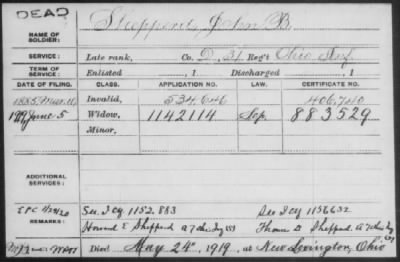 DEAD
NAME OF SOLDIER: Shepperd, John B.
SERVICE: Late rank, Co. D, 31 Reg't Ohio Inf
TERM OF SERVICE: Enlisted , 1 Discharged , 1
DATE OF FILING. CLASS. APPLICATION NO. LAW. CERTIFICATE NO.
1885, Mar. Invalid, 534,646 406,740
June 5 Widow, 1142114 883529
Minor,
ADDITIONAL SERVICES:
See I cy 1152.883 See I cy 1156632
REMARKS: Howard E Sheppard Thomas D Sheppard
Died May 24th, 1919, at New Lexington, Ohio